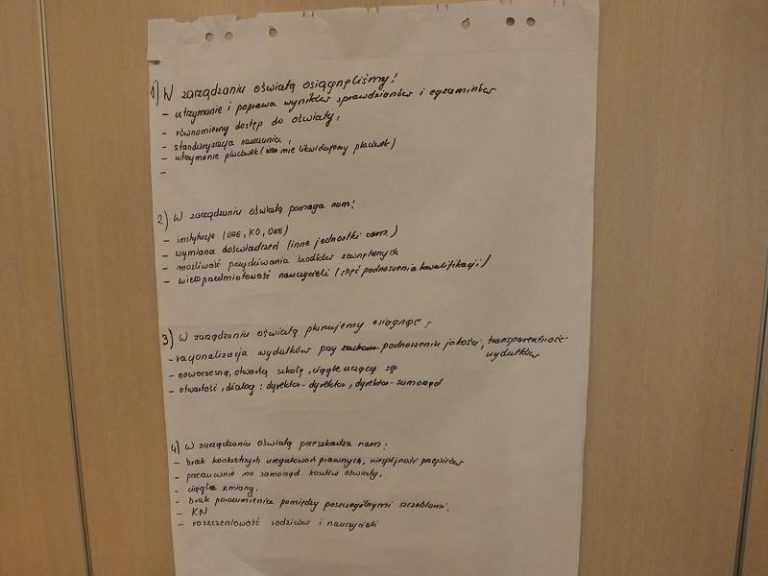 1) W zarządzaniu oświatą osiągnęliśmy!
- utrzymanie i poprawa wyników sprawdzianów i egzaminów
- równomierny dostęp do oświaty,
- standaryzacja nauczania,
- utrzymanie placówek (nie likwidujemy placówek)
-
2) W zarządzaniu oświatą pomaga nam:
- instytucje (ORE, KO, OKE)
- wymiana doświadczeń (inne jednostki sam.)
- możliwość pozyskiwania środków zewnętrznych
- wieloprzedmiotowość nauczycieli (chęć podnoszenia kwalifikacji)
3) W zarządzaniu oświatą planujemy osiągnąć:
- racjonalizacja wydatków przy podnoszeniu jakości, transparentność
wydatków
- nowoczesną, otwartą szkołę, ciągle uczącą się
- otwartość, dialog: dyrektor-dyrektor, dyrektor-samorząd
4) W zarządzaniu oświatą przeszkadza nam:
- brak konkretnych uregulowań prawnych, niespójność przepisów
- przerzucanie na samorząd kosztów oświaty,
- ciągłe zmiany.
- brak porozumienia pomiędzy poszczególnymi szczeblami.
- KN
- roszczeniowość rodziców i nauczycieli